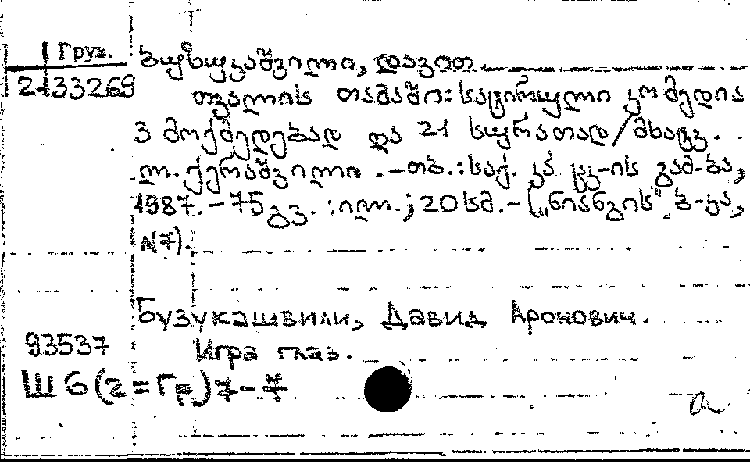 Груз.
ბუზუკაშვილი, დავით
2-33269
თვალის თამაში: სატირული კომედია
3 მოქმედებად და 21 სურათად/მხატვ.
ლ. ქერაშვილი. – თბ.: საქ. კპ ცკ-ის გამ-ბა,
1987. – 75 გვ.: ილ.; 20 სმ. – („ნიანგის“ ბ-კა,
N 7).
Бузукашвили, Давид Аронович.
93537
Игра глаз.
Ш 6(2=Гр)7-7
а